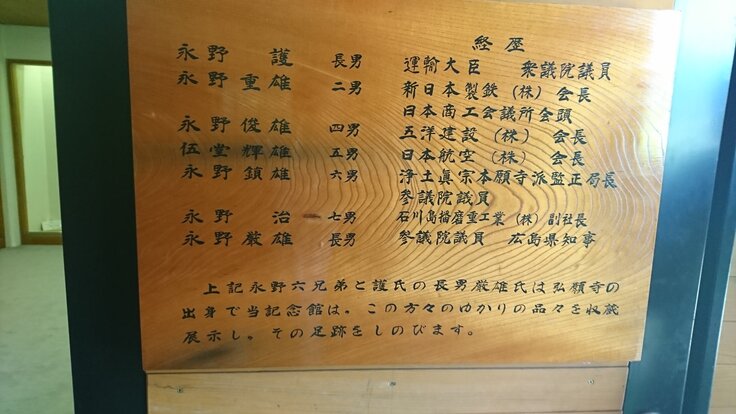 経歴
永野 護 長男 運輸大臣 衆議院議員
永野重雄 二男 新日本製鉄(株)会長
日本商工会議所会頭
永野俊雄 四男 五洋建設(株)会長
伍堂輝雄 五男 日本航空(株)会長
永野鎮雄 六男 浄土真宗本願寺派監正局長
参議院議員
永野 治 七男 石川島播磨重工業(株)副社長
永野厳雄 長男 参議院議員 広島県知事
上記永野六兄弟と護氏の長男厳雄氏は弘願寺の
出身で当記念館は。この方々のゆかりの品々を収蔵
展示し。その足跡をしのびます。